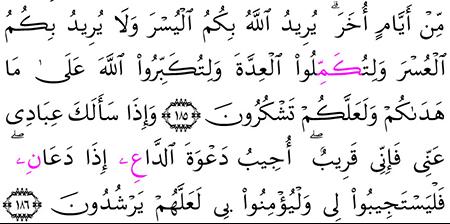 مِّنْ أَيَّامٍ أُخَرَ ۗ يُرِيدُ ٱللَّهُ بِكُمُ ٱلْيُسْرَ وَلَا يُرِيدُ بِكُمُ
ٱلْعُسْرَ وَلِتُكَمِّلُوا۟ ٱلْعِدَّةَ وَلِتُكَبِّرُوا۟ ٱللَّهَ عَلَىٰ مَا
هَدَىٰكُمْ وَلَعَلَّكُمْ تَشْكُرُونَ ﴿١٨٥﴾ وَإِذَا سَأَلَكَ عِبَادِى
عَنِّى فَإِنِّى قَرِيبٌ ۖ أُجِيبُ دَعْوَةَ ٱلدَّاعِۦ إِذَا دَعَانِۦ ۖ
فَلْيَسْتَجِيبُوا۟ لِى وَلْيُؤْمِنُوا۟ بِى لَعَلَّهُمْ يَرْشُدُونَ ﴿١٨٦﴾